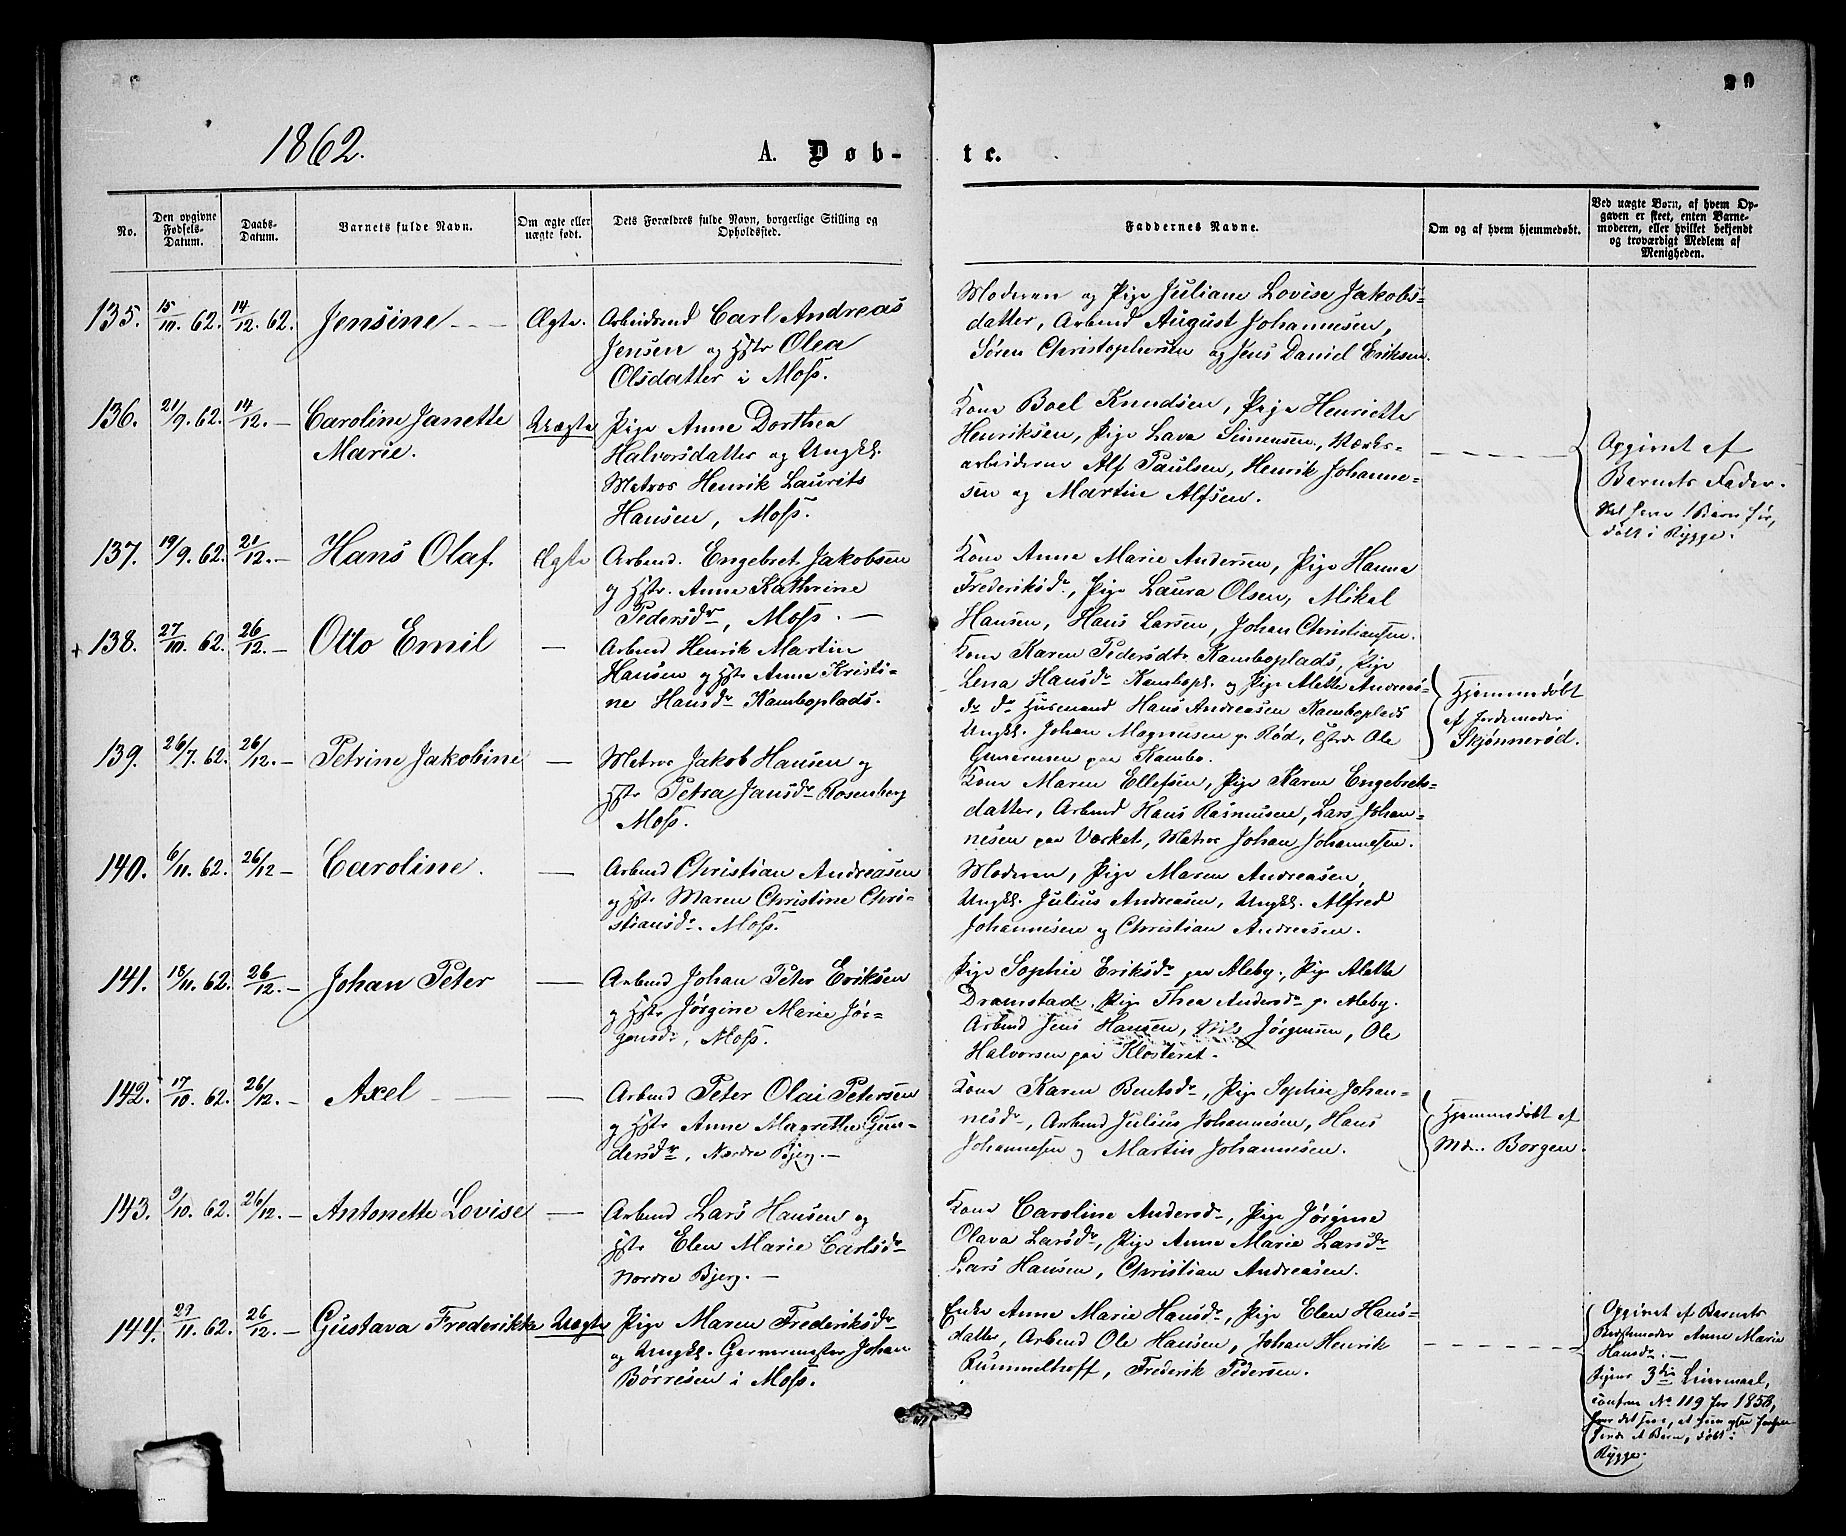 1862.
A. Døb-
te.
No.
Den opgivne Fødsels-Datum.
Daabs-Datum.
Barnets fulde Navn.
Om ægte eller uægte født.
Dets Forældres fulde Navn, borgerlige Stilling og Opholdssted.
Faddernes Navne.
Om og af hvem hjemmedøbt.
Ved uægte Børn, af hvem Opgaven er skeet, enten Barnemoderen, eller hvilket bekjendt og troværdigt Medlem af Menigheden.
135. 15/10. 62. 14/12. 62. Jensine Ægte.
Arbeidsmd Carl Andreas
Jensen og Hstr Olea
Olsdatter i Moss.
Moderen og Pige Juliane Lovise Jakobs-
datter, Arbmd August Johannesen,
Søren Christophersen og Jens Daniel Eriksen.
136. 21/9. 62. 14/12. — Caroline Janette
Marie.
Uægte
Pige Anne Dorthea
Halvorsdatter og Ungkl.
Matros Henrik Laurits
Hansen, Moss.
Kone Boel Knudsen, Pige Henriette
Henriksen, Pige Lava Simensen, Værks-
arbeiderne Alf Paulsen, Henrik Johanne-
sen og Martin Alfsen.
Opgivet af
Barnets Fader.
Skal have 1 Barn før,
døbt i Rygge.
137. 19/9. 62. 21/12. — Hans Olaf. Ægte
Arbmd. Engebret Jakobsen
og Hstr. Anne Kathrine
Pedersdr, Moss. —
Kone Anne Marie Andersen, Pige Hanna
Frederiksdr, Pige Laura Olsen, Mikal
Hansen, Hans Larsen, Johan Christiansen.
+ 138. 27/10. 62. 26/12. — Otto Emil —
Arbmd Henrik Martin
Hansen og Hstr Anne Kristi-
ne Hansdr Kamboplads.
Kone Karen Pedersdtr Kamboplads, Pige
Lena Hansdr Kambopl. og Pige Alette Andreas-
dr do Husmand Hans Andreasen Kamboplads
Ungkl. Johan Magnusen p. Rød, Ole
Gunersen paa Kambo.
Hjemmedøbt
af Jordemoder
Skjønnerød.
139. 26/7. 62. 26/12. — Petrine Jakobine —
Matros Jakob Hansen og
Hstr Petra Jansdr Rosenberg
Moss.
Kone Maren Ellefsen, Pige Karen Engebrets-
datter, Arbmd Hans Rasmusen, Lars Johan-
nesen paa Værket, Matros Johan Johannesen.
140. 6/11. 62. 26/12 — Caroline. —
Arbmd Christian Andreasen
og Hstr Maren Christine Chri-
stiansdr. Moss.
Moderen, Pige Maren Andreasen,
Ungkl. Julius Andreasen, Ungkl. Alfred
Johannesen og Christian Andreasen.
141. 18/11. 62. 26/12. — Johan Peter —
Arbmd Johan Peter Eriksen
og Hstr Jørgine Marie Jør-
gensdr, Moss.
Pige Sophie Eriksdr paa Aleby, Pige Alette
Dramstad, Pige Thea Andersdr p. Aleby.
Arbmd Jens Hansen, Nils Jørgensen, Ole
Halvorsen paa Klosteret.
142. 17/10. 62. 26/12. — Axel —
Arbmd Peter Olai Petersen
og Hstr Anne Magrethe Gun-
dersdr, Nordre Bjerg. —
Kone Karen Bentsdr, Pige Sophie Johan-
nesdr, Arbmd Julius Johannesen, Hans
Johannesen og Martin Johannesen.
Hjemmedøbt af
Borgen.
143. 9/10. 62. 26/12. — Antonette Lovise —
Arbmd Lars Hansen og
Hstr Elen Marie Carlsdr
Nordre Bjerg. —
Kone Caroline Andersdr, Pige Jørgine
Olava Larsdr, Pige Anne Marie Larsdr
Lars Hansen, Christian Andreasen.
144. 29/11. 62. 26/12. — Gustava Frederikke Uægte
Pige Maren Frederiksdr
og Ungkl. Garvermester Johan
Børresen i Moss.
Enke Anne Marie Hansdr, Pige Elen Hans-
datter, Arbmd Ole Hansen, Johan Henrik
Rummelhoff, Frederik Pedersen.
Opgivet af Barnets
Bedstemoder Anne Marie
Hansdr. —
Pigens 3die Leiermaal,
confer No 119 for 1858,
døbt i
Rygge.